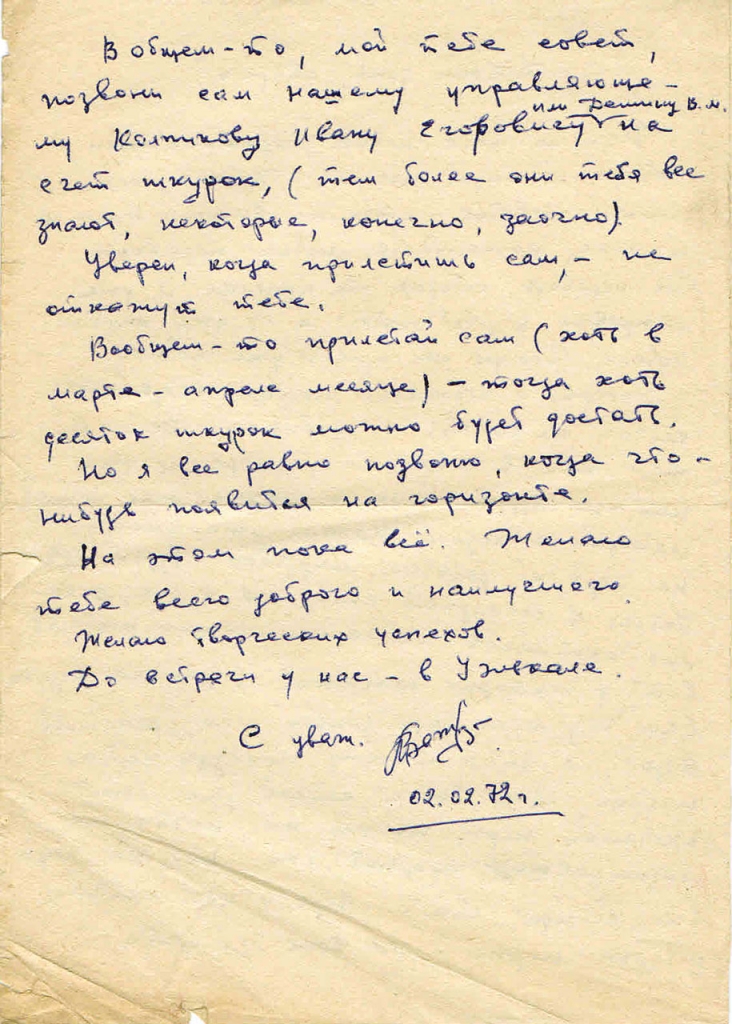 В общем-то, мой тебе совет,
позвони сам нашему управляюще-
или Демину В.м.
му Колпикову Ивану Егоровичу на
счет шкурок, (тем более они тебя все
знают, некоторые, конечно, заочно).
Уверен, когда прилетишь сам, - не
откажут тебе.
Вообщем-то прилетай сам (хоть в
марте - апреле месяце) - тогда хоть
десяток шкурок можно будет достать.
Но я все равно позвоню, когда что-
нибудь появится на горизонте.
На этом пока всё. Желаю
тебе всего доброго и наилучшего.
Желаю творческих успехов.
До встречи у нас - в Уэлькале.
С уваж.
02.02.72 г.